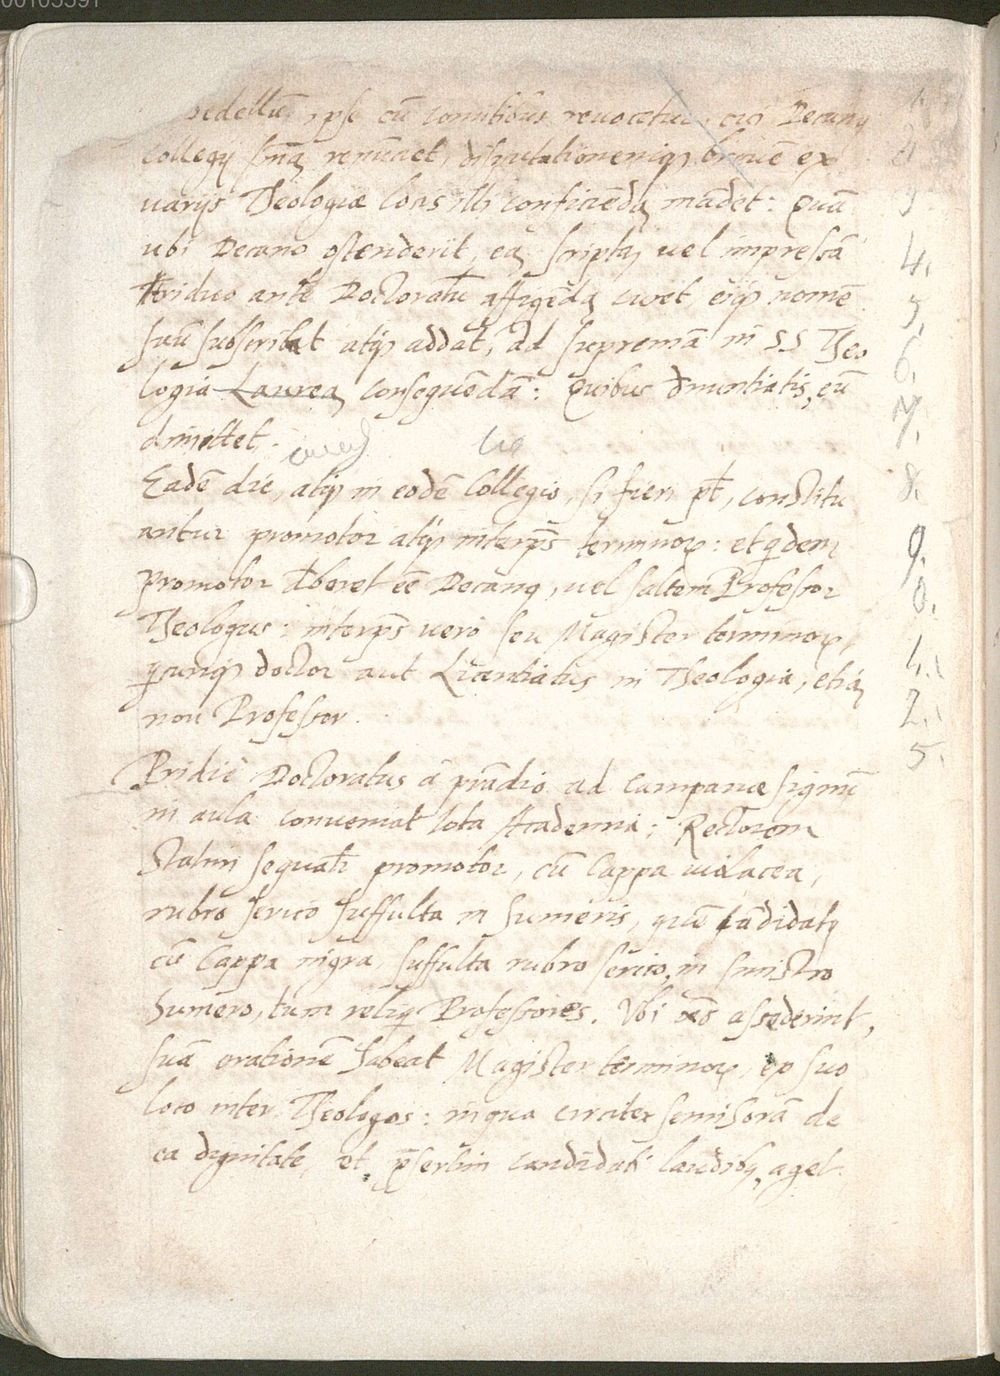 00103391
bedellū, ipse cū comitibus reuocatur, cui Decanꝰ
Collegij sn̄iā renūciet, disputationemqꝫ breuē ex
varijs Theologiæ locis illi conficiēdā mādet: quā
ubi Decano ostenderit, eā scriptā, uel impressā
triduo ante Doctoratū affigēdā curet, eiqꝫ nomē
suū subscribat atqꝫ addat, ad supremā in SS Theo
logia Laureā consequēdā: Quibus dnuntiatis, eū
dimittet.
Eadē die, atqꝫ in eodē Collegio, si fieri pt̄, constitu
antur promotor atqꝫ interp̄s terminoꝝ: et qͥdem
promotor dberet ēē Decanꝰ, uel saltem Professor
Theologus: interp̄s uero seu Magister terminoꝝ,
doctor aut Licentiatus in Theologia, etiā
non Professor.
Pridiè Doctoratus à prādio ad campanæ signū
in aula conueniat tota Academia; Rectorem
statim sequat̄ promotor, cū Cappa uiolacea,
rubro serico suffulta in humeris, quē cādidatꝰ
cū Cappa nigra suffulta rubro serico, in sinistro
humero, tum reliqͥ Professores. Vbi oēs assederint,
suā orationē habeat Magister terminoꝝ, ex suo
loco inter Theologos: in qua circiter semihorā de
ea dignitate, et p̄sertim candidati laudibꝰ, aget.
4.
5.
6.
7.
8.
9.
0.
1.
2.
5.